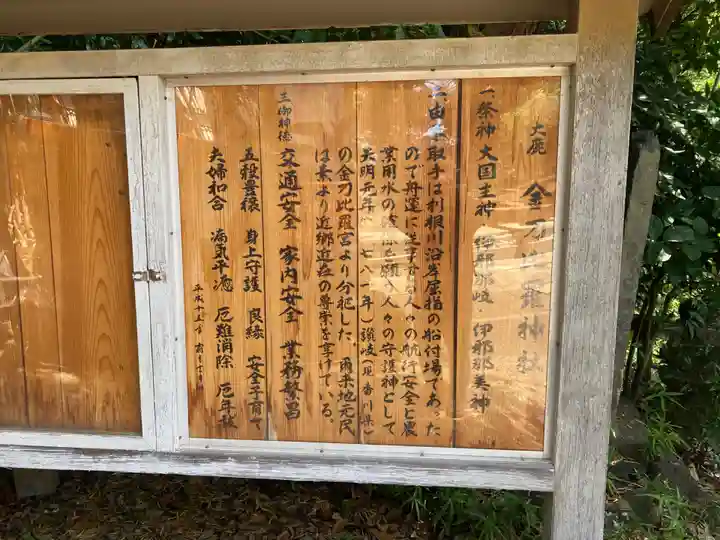 大鹿 金刀比羅神社
一祭神 大国主神 伊那那岐・伊那那美神
二由来 取手は利根川沿岸屈指の船付場であった
ので舟運に従事する人々の航行安全と農
業用水の確保を願う人々の守護神として
天明元年(一七八一年)讃岐(現香川県)
の金刀比羅宮より分祀した。爾来地元民
は素より近郷近在の尊崇を享けている。
三御神徳 交通安全 家内安全 業務繁昌
五穀豊穣 身上守護 良縁 安全子育て
夫婦和合 病気平癒 厄難消除 厄年祓
平成十五年